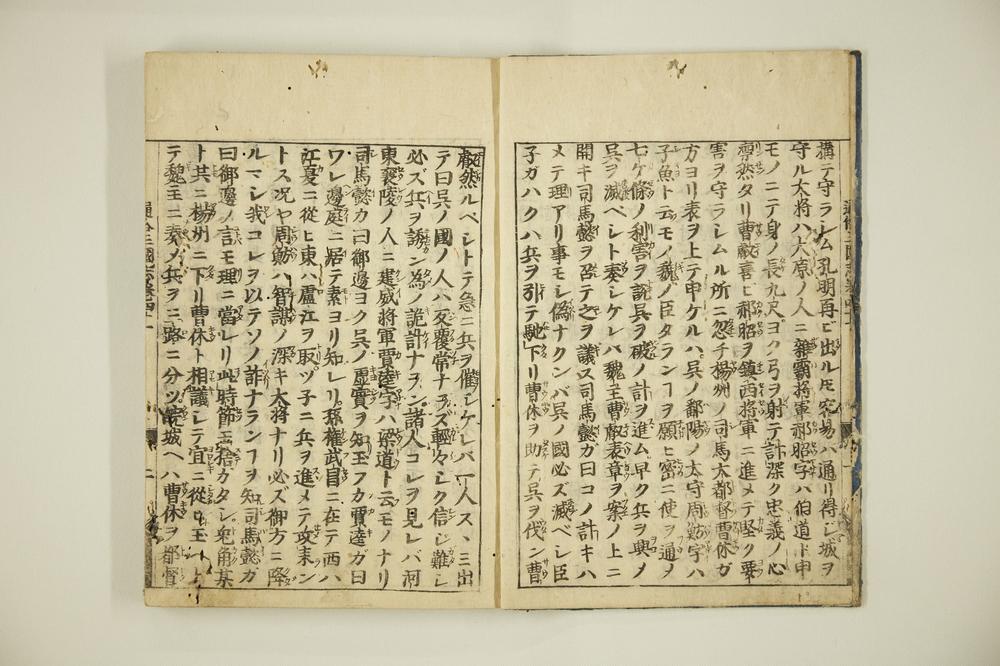 構テ守ラシム孔明再ビ出ル𪜈容易ハ通リ得ジ城ヲ
守ル大將ハ太原ノ人ニ雜霸將軍郝昭字ハ伯道ト申
モノニテ身ノ長九尺ヨク弓ヲ射テ計深ク忠義ノ心
凛然タリ曹叡喜ヒ郝昭ヲ鎮西將軍ニ進メテ堅ク要
害ヲ守ラシムル所ニ忽チ楊州ノ司馬大都督曹休ガ
方ヨリ表ヲ上テ申ケルハ呉ノ鄱陽ノ太守周魴字ハ
子魚ト云モノ魏ノ臣タランヿヲ願ヒ密ニ使ヲ通メ
七ケ條ノ利害ヲ説呉ヲ破ノ計ヲ進ム早ク兵ヲ興メ
呉ヲ滅ベシト奏シケレバ魏主曹叡表章ヲ案ノ上ニ
開キ司馬懿ヲ召テ之ヲ議ス司馬懿ガ曰コノ計キハ
メテ理アリ事モシ偽ナクンバ呉ノ國必ズ滅ベシ臣
子ガハクハ兵ヲ引テ馳下リ曹休ヲ助テ呉ヲ伐ン曹
叡然ルベシトテ急ニ兵ヲ催シケレバ一人スヽミ出
テ曰呉ノ國ノ人ハ反覆常ナラズ輕々シク信ジ難シ
必ズ兵ヲ謝ン為ノ詭計ナラン諸人コレヲ見レバ河
東襄陵ノ人ニ建威將軍賈逵字ハ梁道ト云モノナリ
司馬懿カ曰御邊ヨク呉ノ虚實ヲ知玉フカ賈逵ガ曰
ワレ邊庭ニ居テ素ヨリ知レリ孫權武昌ニ在テ西ハ
江夏ニ從ヒ東ハ盧江ヲ取ツ子ニ兵ヲ進メテ攻来ン
トス况ヤ周魴ハ智謀ノ深キ大將ナリ必ズ御方ニ降
ルマシ我コレヲ以テソノ詐ナランヿヲ知司馬懿ガ
曰御邊ノ言モ理ニ當レリ此時節モ捨カタシ兎角某
ト共ニ楊州ニ下リ曹休ト相議シテ宜ニ從ヒ玉
テ魏主ニ奏メ兵ヲ三路ニ分ツ皖城ヘハ曹休ヲ都督